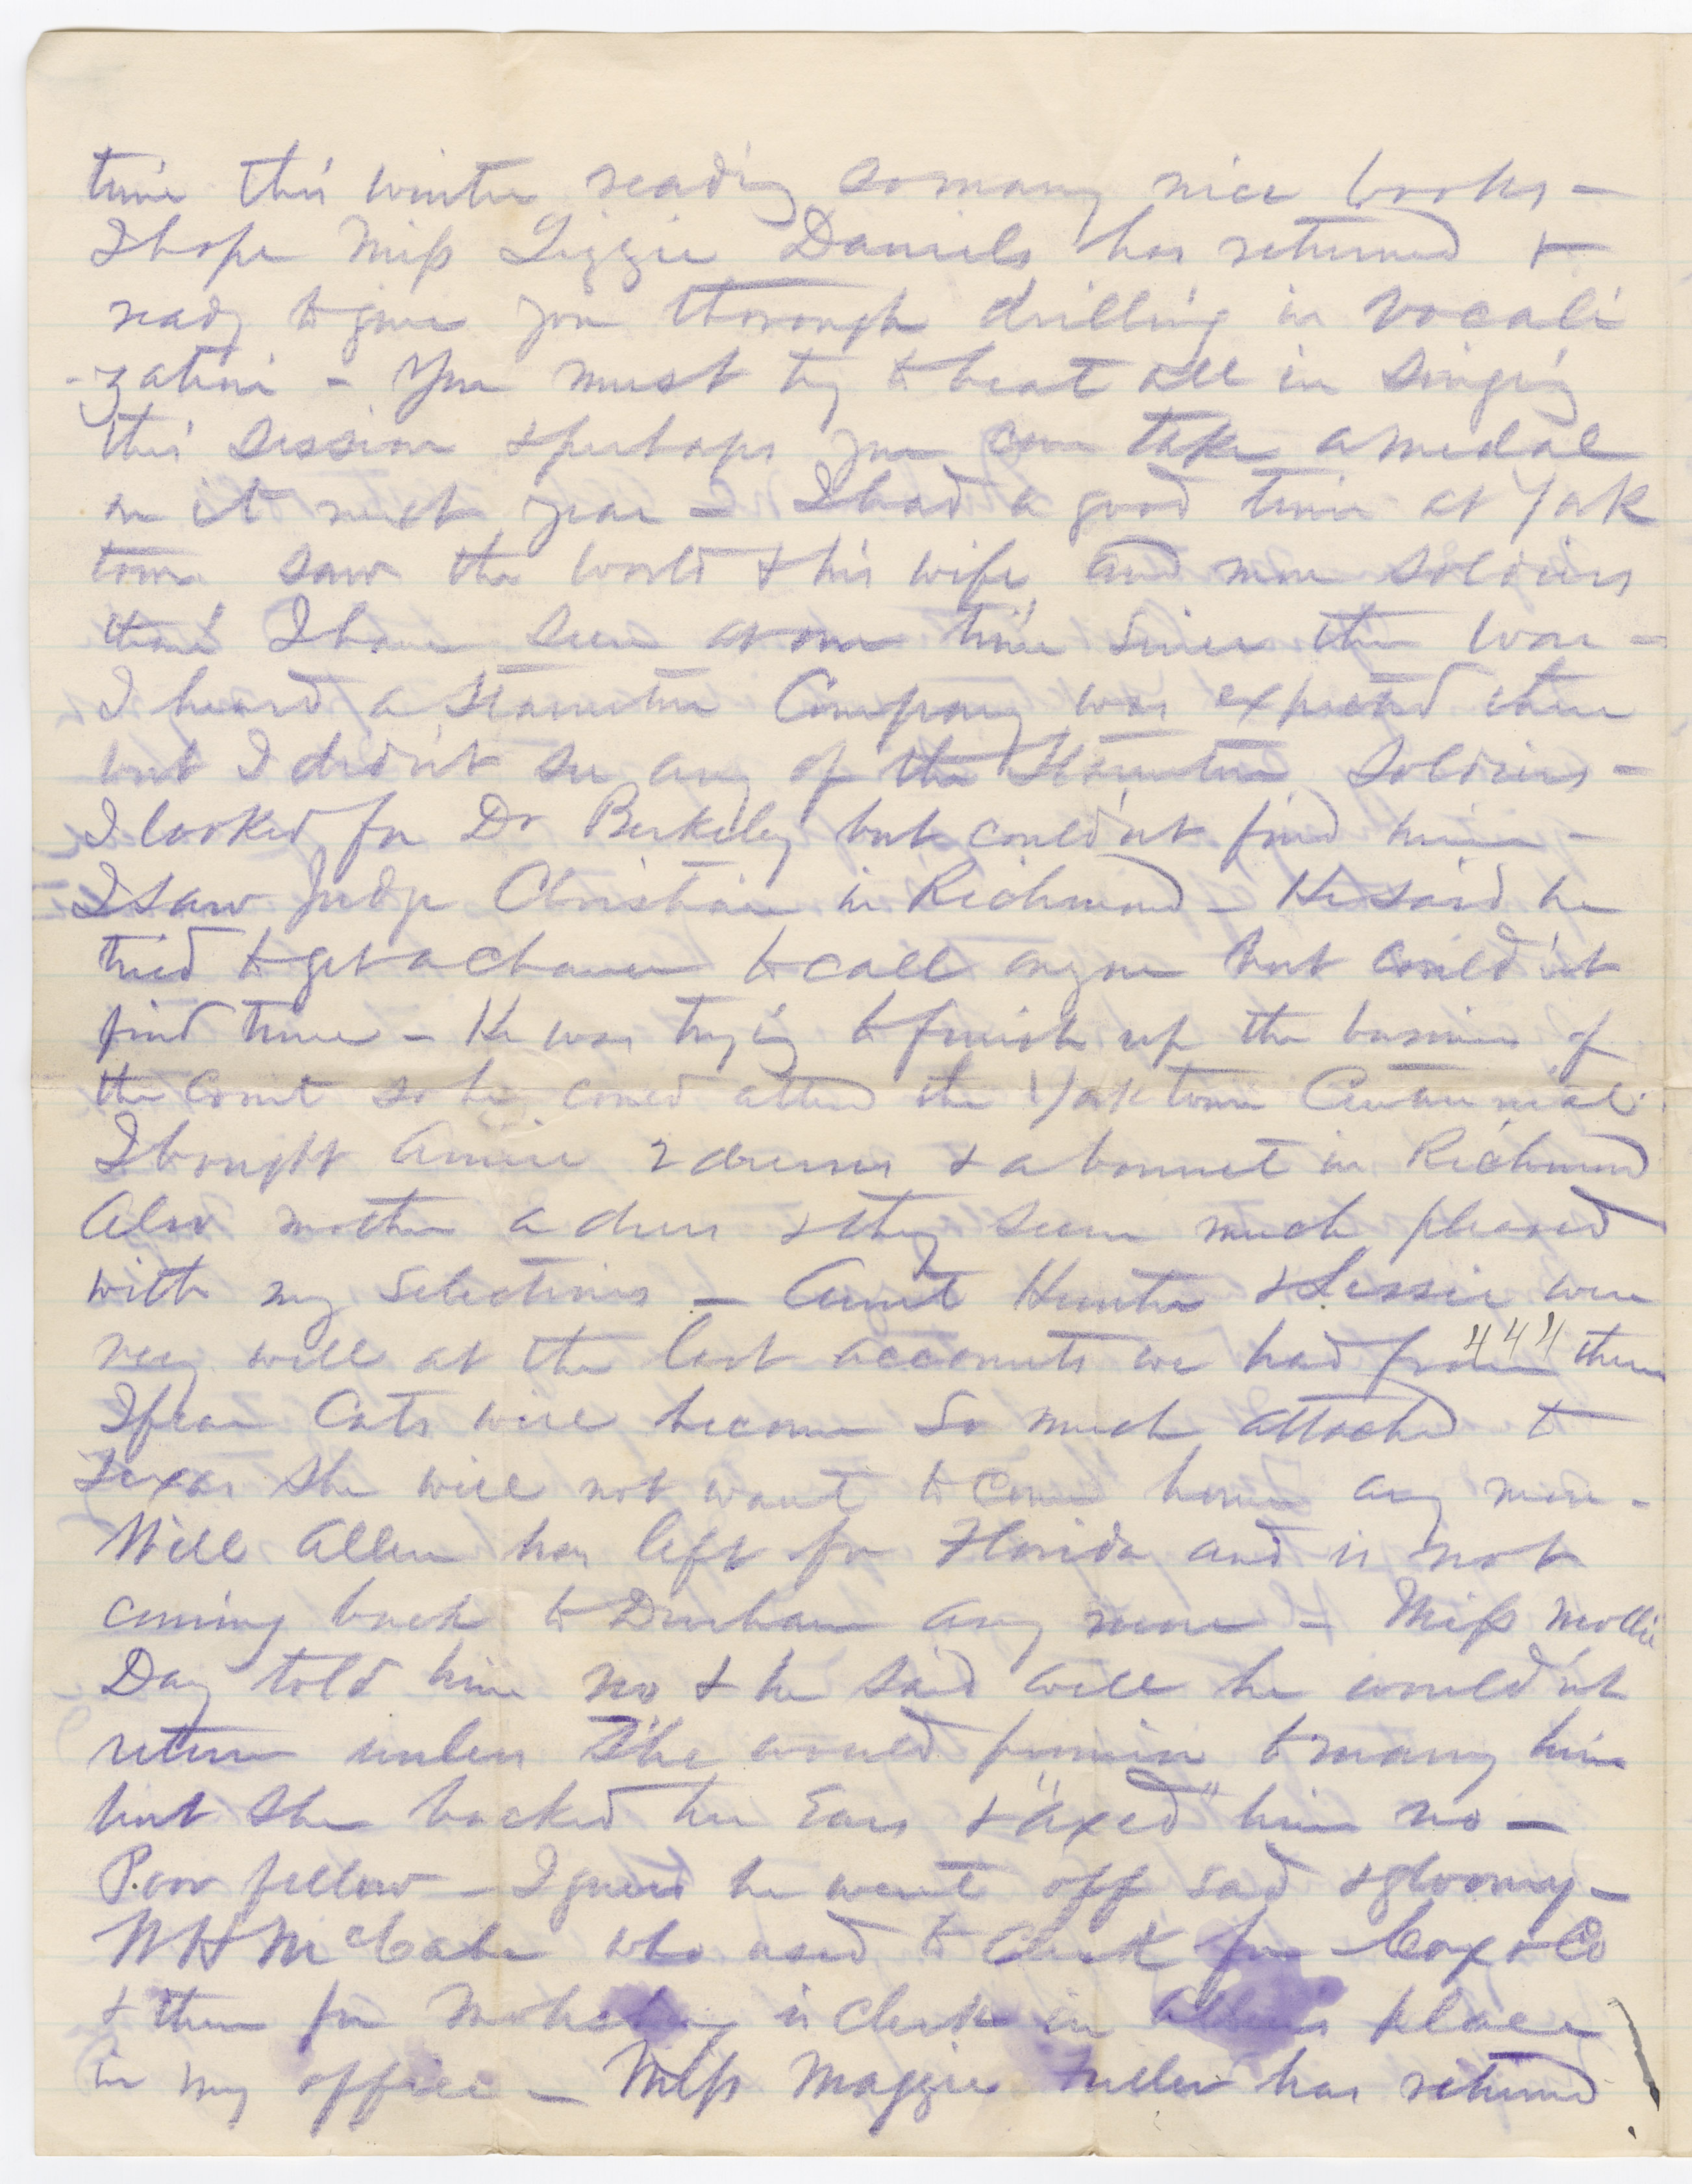 time this winter reading so many nice books -
I hope Miss Lizzie Daniels has returned &
ready to give you thorough drilling in vocali
-zation - You must try to beat all in singing
this session & perhaps you can take a medal
on it next year - I had a good time at York
town saw the world & his wife and more soldiers
than I have seen at one time since the war -
I heard a Staunton Company was expected there
but I didn't see any of the Staunton soldiers -
I looked for Dr Berkeley but could'nt find him -
I saw Judge Christian in Richmond - He said he
tried to get a chance to call on you but could'nt
find time - He was trying to finish up the business of
the Court so he could attend the Yorktown Centennial.
I bought Annie 2 dresses & a bonnet in Richmond
Also mother a dress & they seem much pleased
with my selections - Aunt Hunter & Lessie were
very well at the last accounts we had from them
444
I fear Cats will become so much attached to
Texas she will not want to come home any more -
Will Allen has left for Florida and is not
coming back to Durham any more - Miss Mollie
Day told him no & he said well he would'nt
return unless she would promise to marry him
but she backed her Ears & "axed" him no -
Poor fellow - I guess he went off sad & gloomy -
W H McCabe who used to Clerk for Cox & Co
& then for is Clerk in Allen's place
in my office - Miss Maggie Fuller has returned